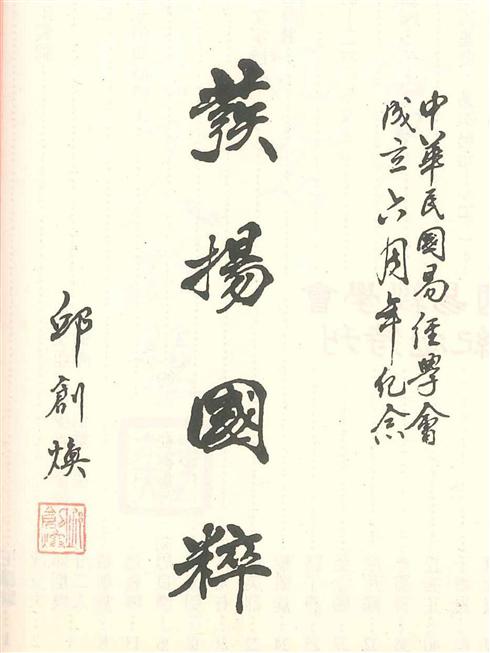 中華民國易經學會
成立六周年纪念
發揚國粹
邱創煥